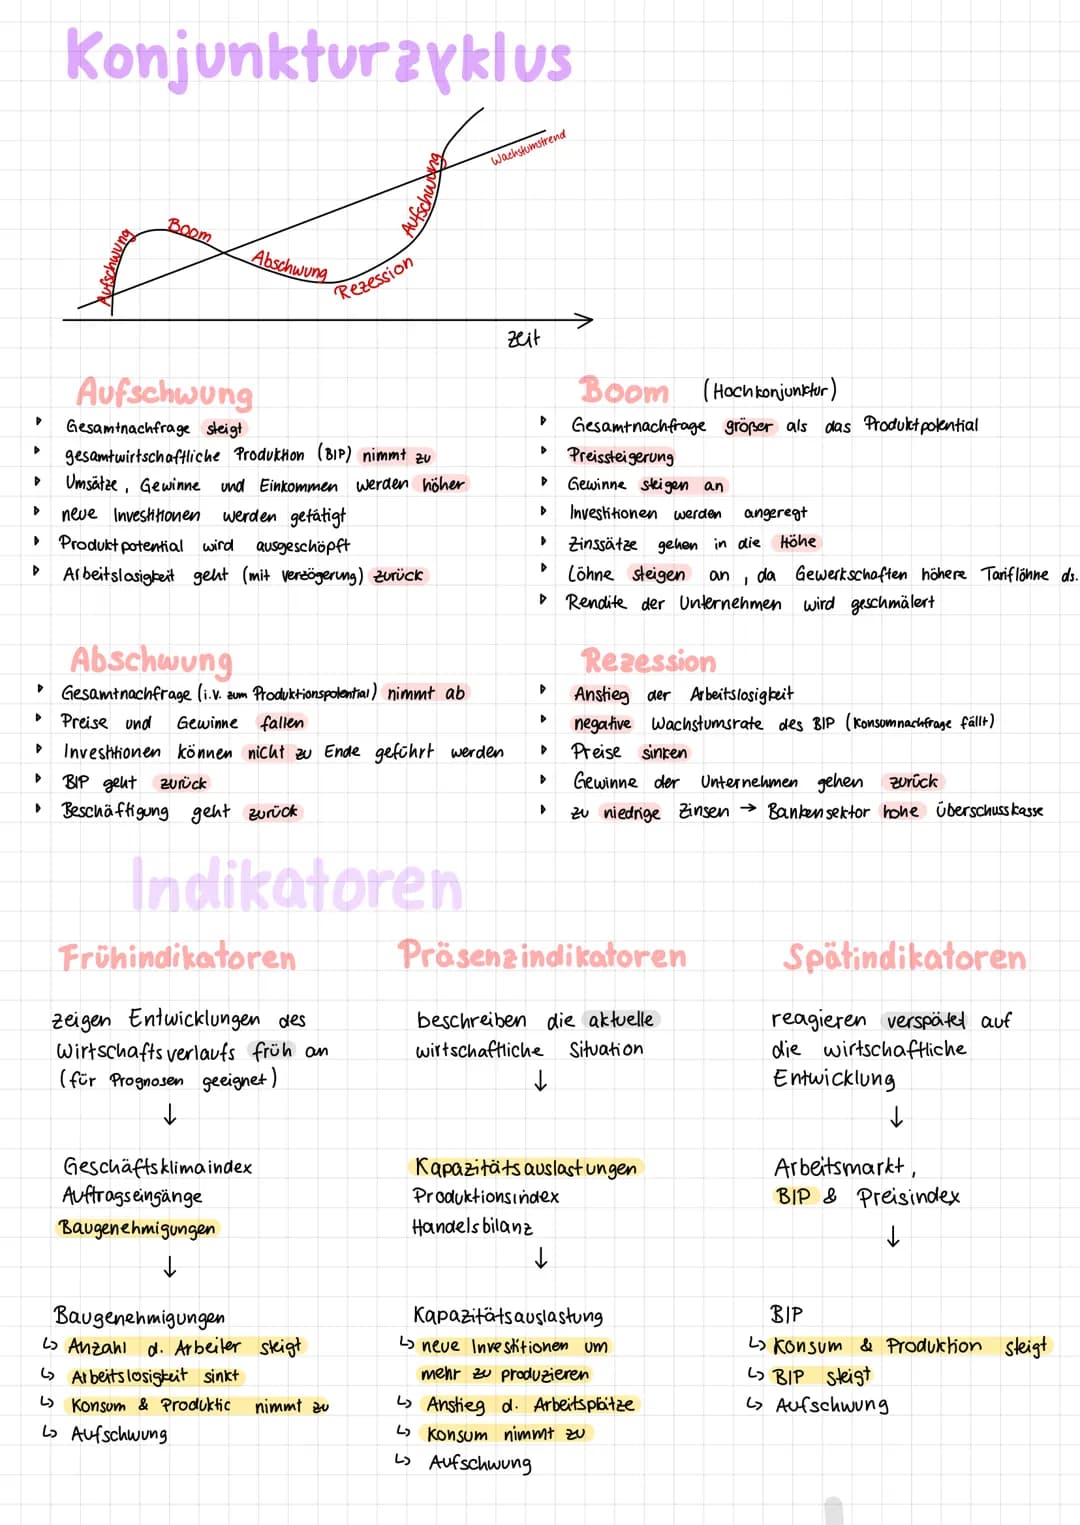 Konjunkturzyklus
Wachstumstrend
Aufschwung
Boom
Abschwung
Rezession
Aufschwung
Zeit
Aufschwung
Gesamtnachfrage steigt
gesamtwirtschaftliche Produktion (BIP) nimmt zu
Umsätze, Gewinne und Einkommen werden höher
neue Investitionen werden getätigt
Produktpotential wird ausgeschöpft
Arbeitslosigkeit geht (mit Verzögerung) zurück
Boom (Hochkonjunktur)
Gesamtnachfrage größer als das Produktpotential
Preissteigerung
Gewinne steigen an
Investitionen werden angeregt
Zinssätze gehen in die Höhe
Löhne steigen an, da Gewerkschaften höhere Tariflöhne ds.
Rendite der Unternehmen wird geschmälert
Abschwung
Gesamtnachfrage (i.V. zum Produktionspotential) nimmt ab
Preise und Gewinne fallen
Investitionen können nicht zu Ende geführt werden
BIP geht zurück
Beschäftigung geht zurück
Rezession
Anstieg der Arbeitslosigkeit
negative Wachstumsrate des BIP (Konsumnachfrage fällt)
Preise sinken
Gewinne der Unternehmen gehen zurück
zu niedrige Zinsen → Bankensektor hohe Überschusskasse
Indikatoren
Frühindikatoren
zeigen Entwicklungen des
Wirtschaftsverlaufs früh an
(für Prognosen geeignet)
↓
Geschäftsklimaindex
Auftragseingänge
Baugenehmigungen
↓
Baugenehmigungen
↳ Anzahl d. Arbeiter steigt
↳ Arbeitslosigkeit sinkt
↳ Konsum & Produktic nimmt zu
↳ Aufschwung
Präsenzindikatoren
beschreiben die aktuelle
wirtschaftliche Situation
↓
Kapazitätsauslastungen
Produktionsindex
Handelsbilanz
↓
Kapazitätsauslastung
↳ neue Investitionen um
mehr zu produzieren
↳ Anstieg d. Arbeitsplätze
↳ Konsum nimmt zu
↳ Aufschwung
Spätindikatoren
reagieren verspätet auf
die wirtschaftliche
Entwicklung
↓
Arbeitsmarkt,
BIP & Preisindex
↓
BIP
↳ Konsum & Produktion steigt
↳ BIP steigt
↳ Aufschwung